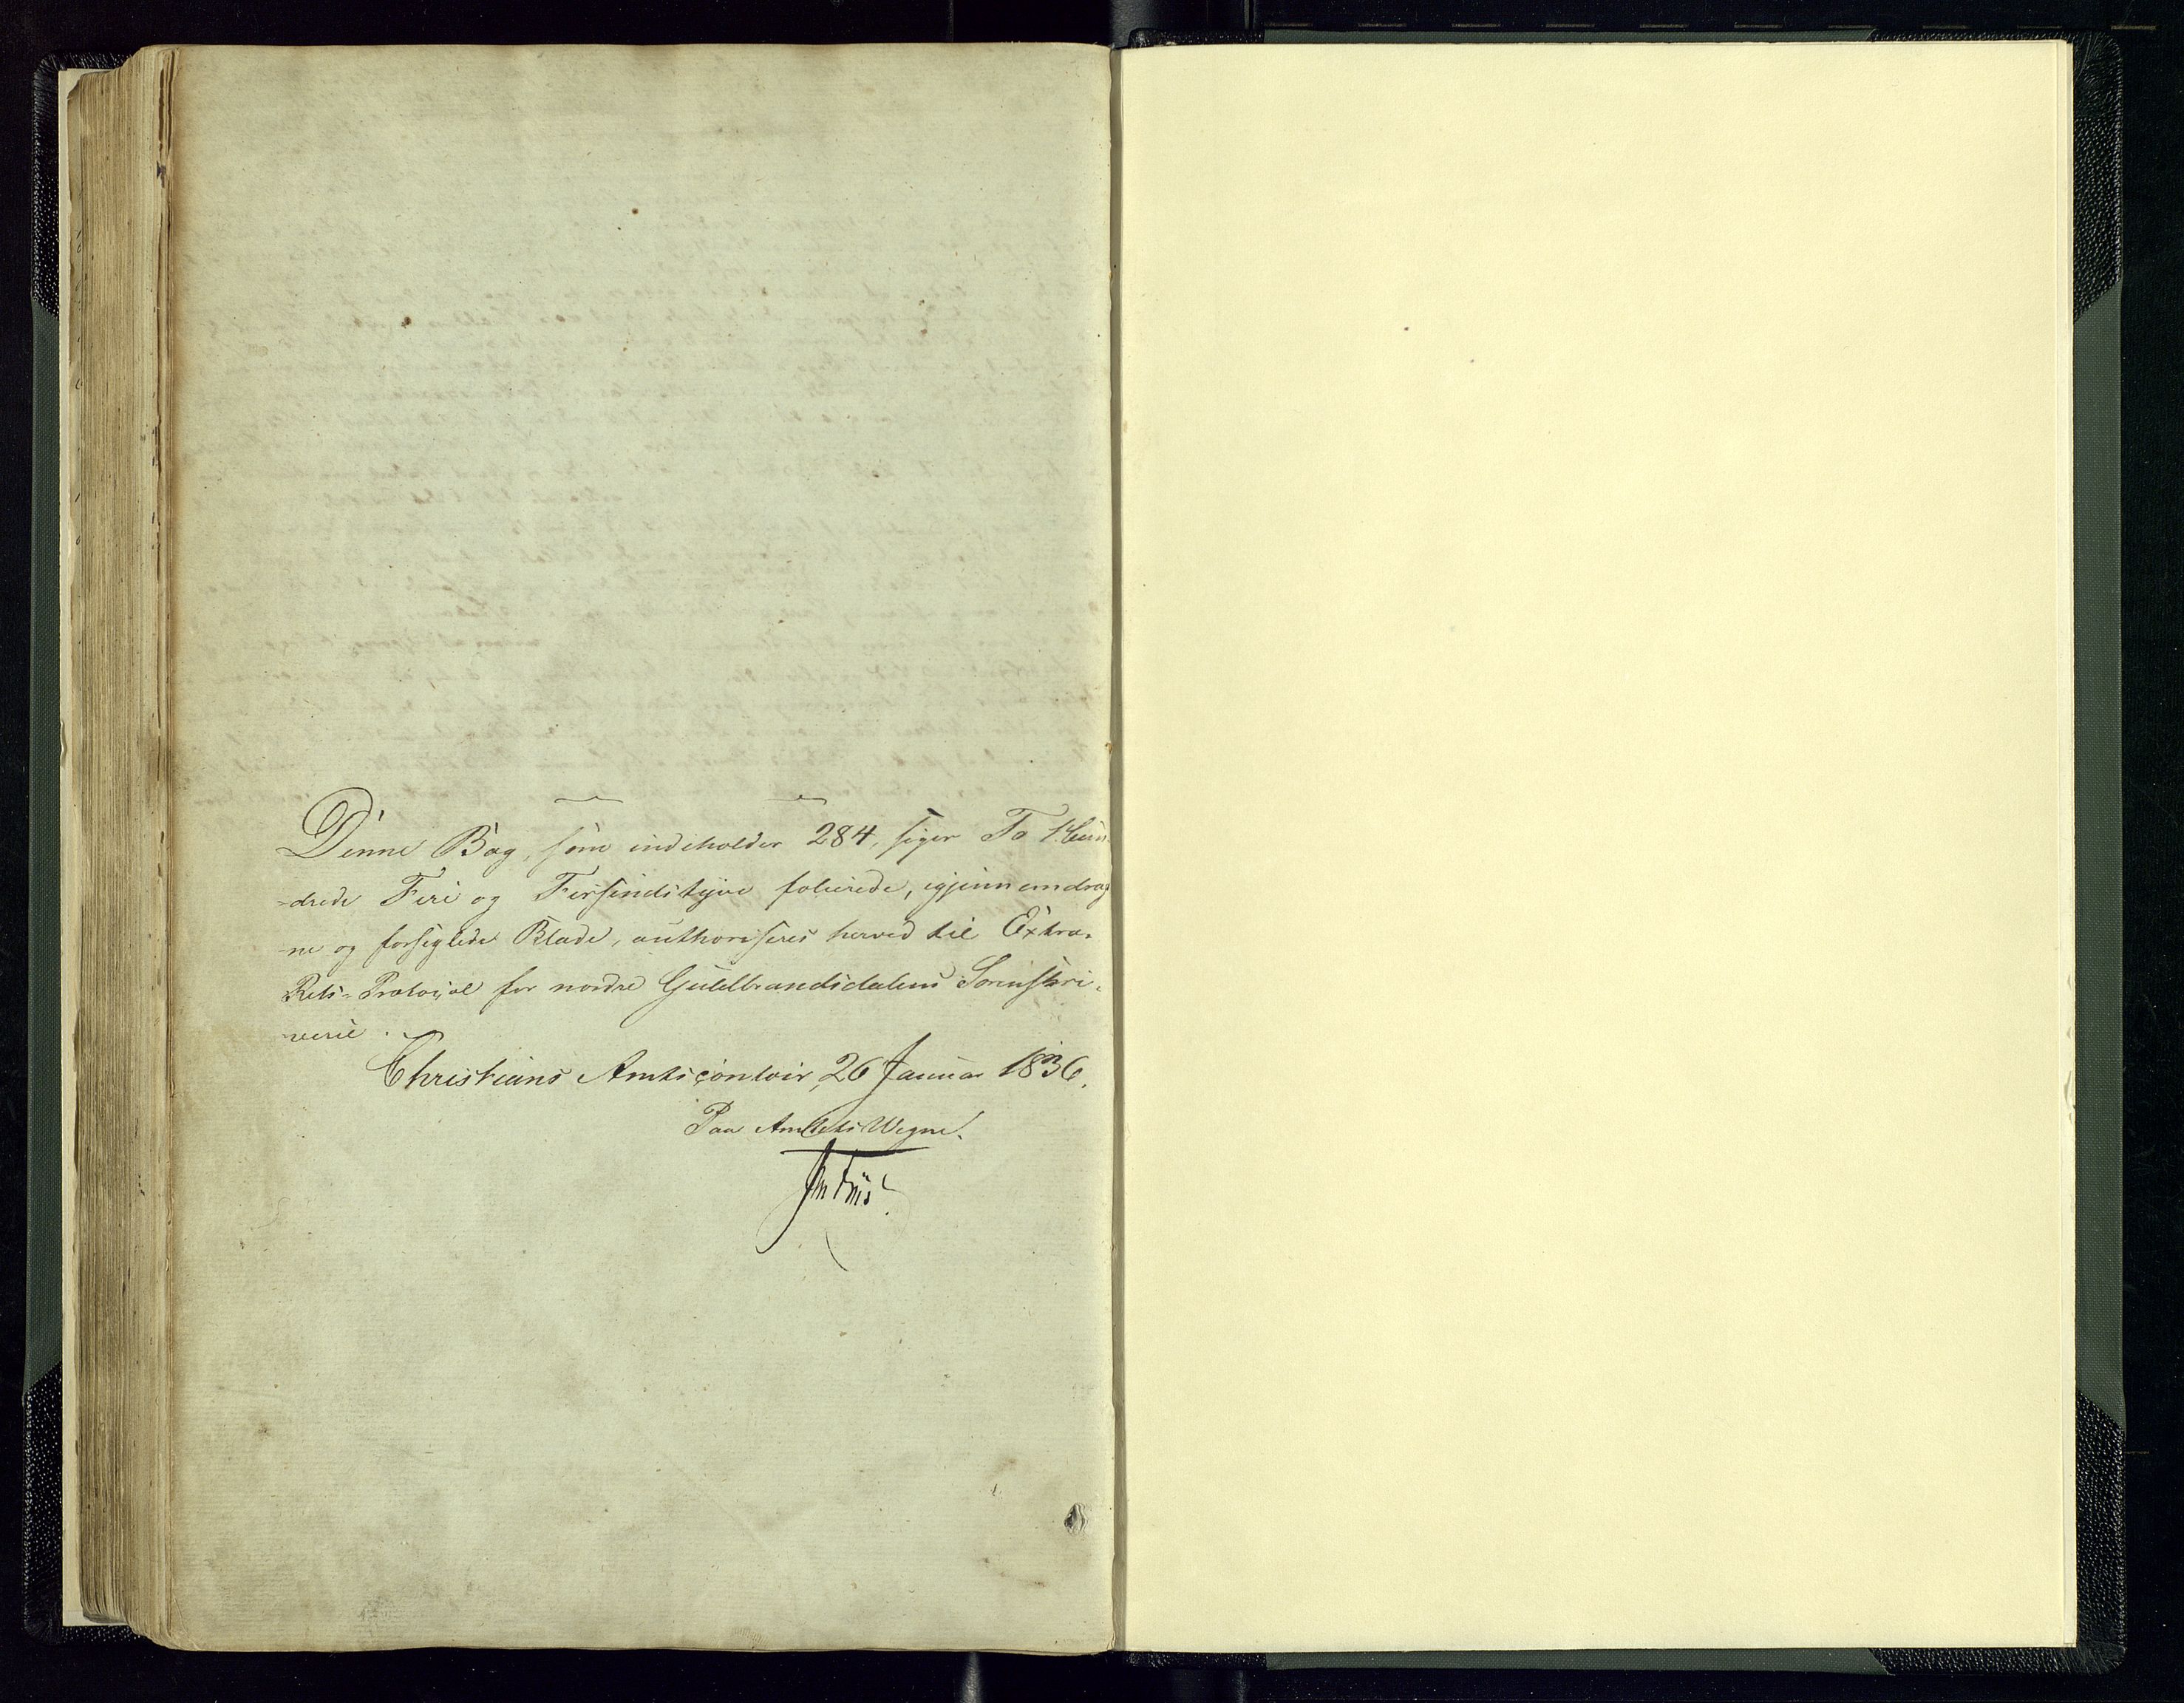 Denne Bog, som indeholder 284, siger To Hun-
-drede Fire og Firsindstyve folierede, igjennemdrag
-ne og forseglede Blade, authoriseres herved til Extra-
Rets-Protocol for nordre Guldbrandsdalens Sorenskri-
-verie.
Christians Amtscontoir, 26 Januar 1836.
Paa Amtets Vegne.